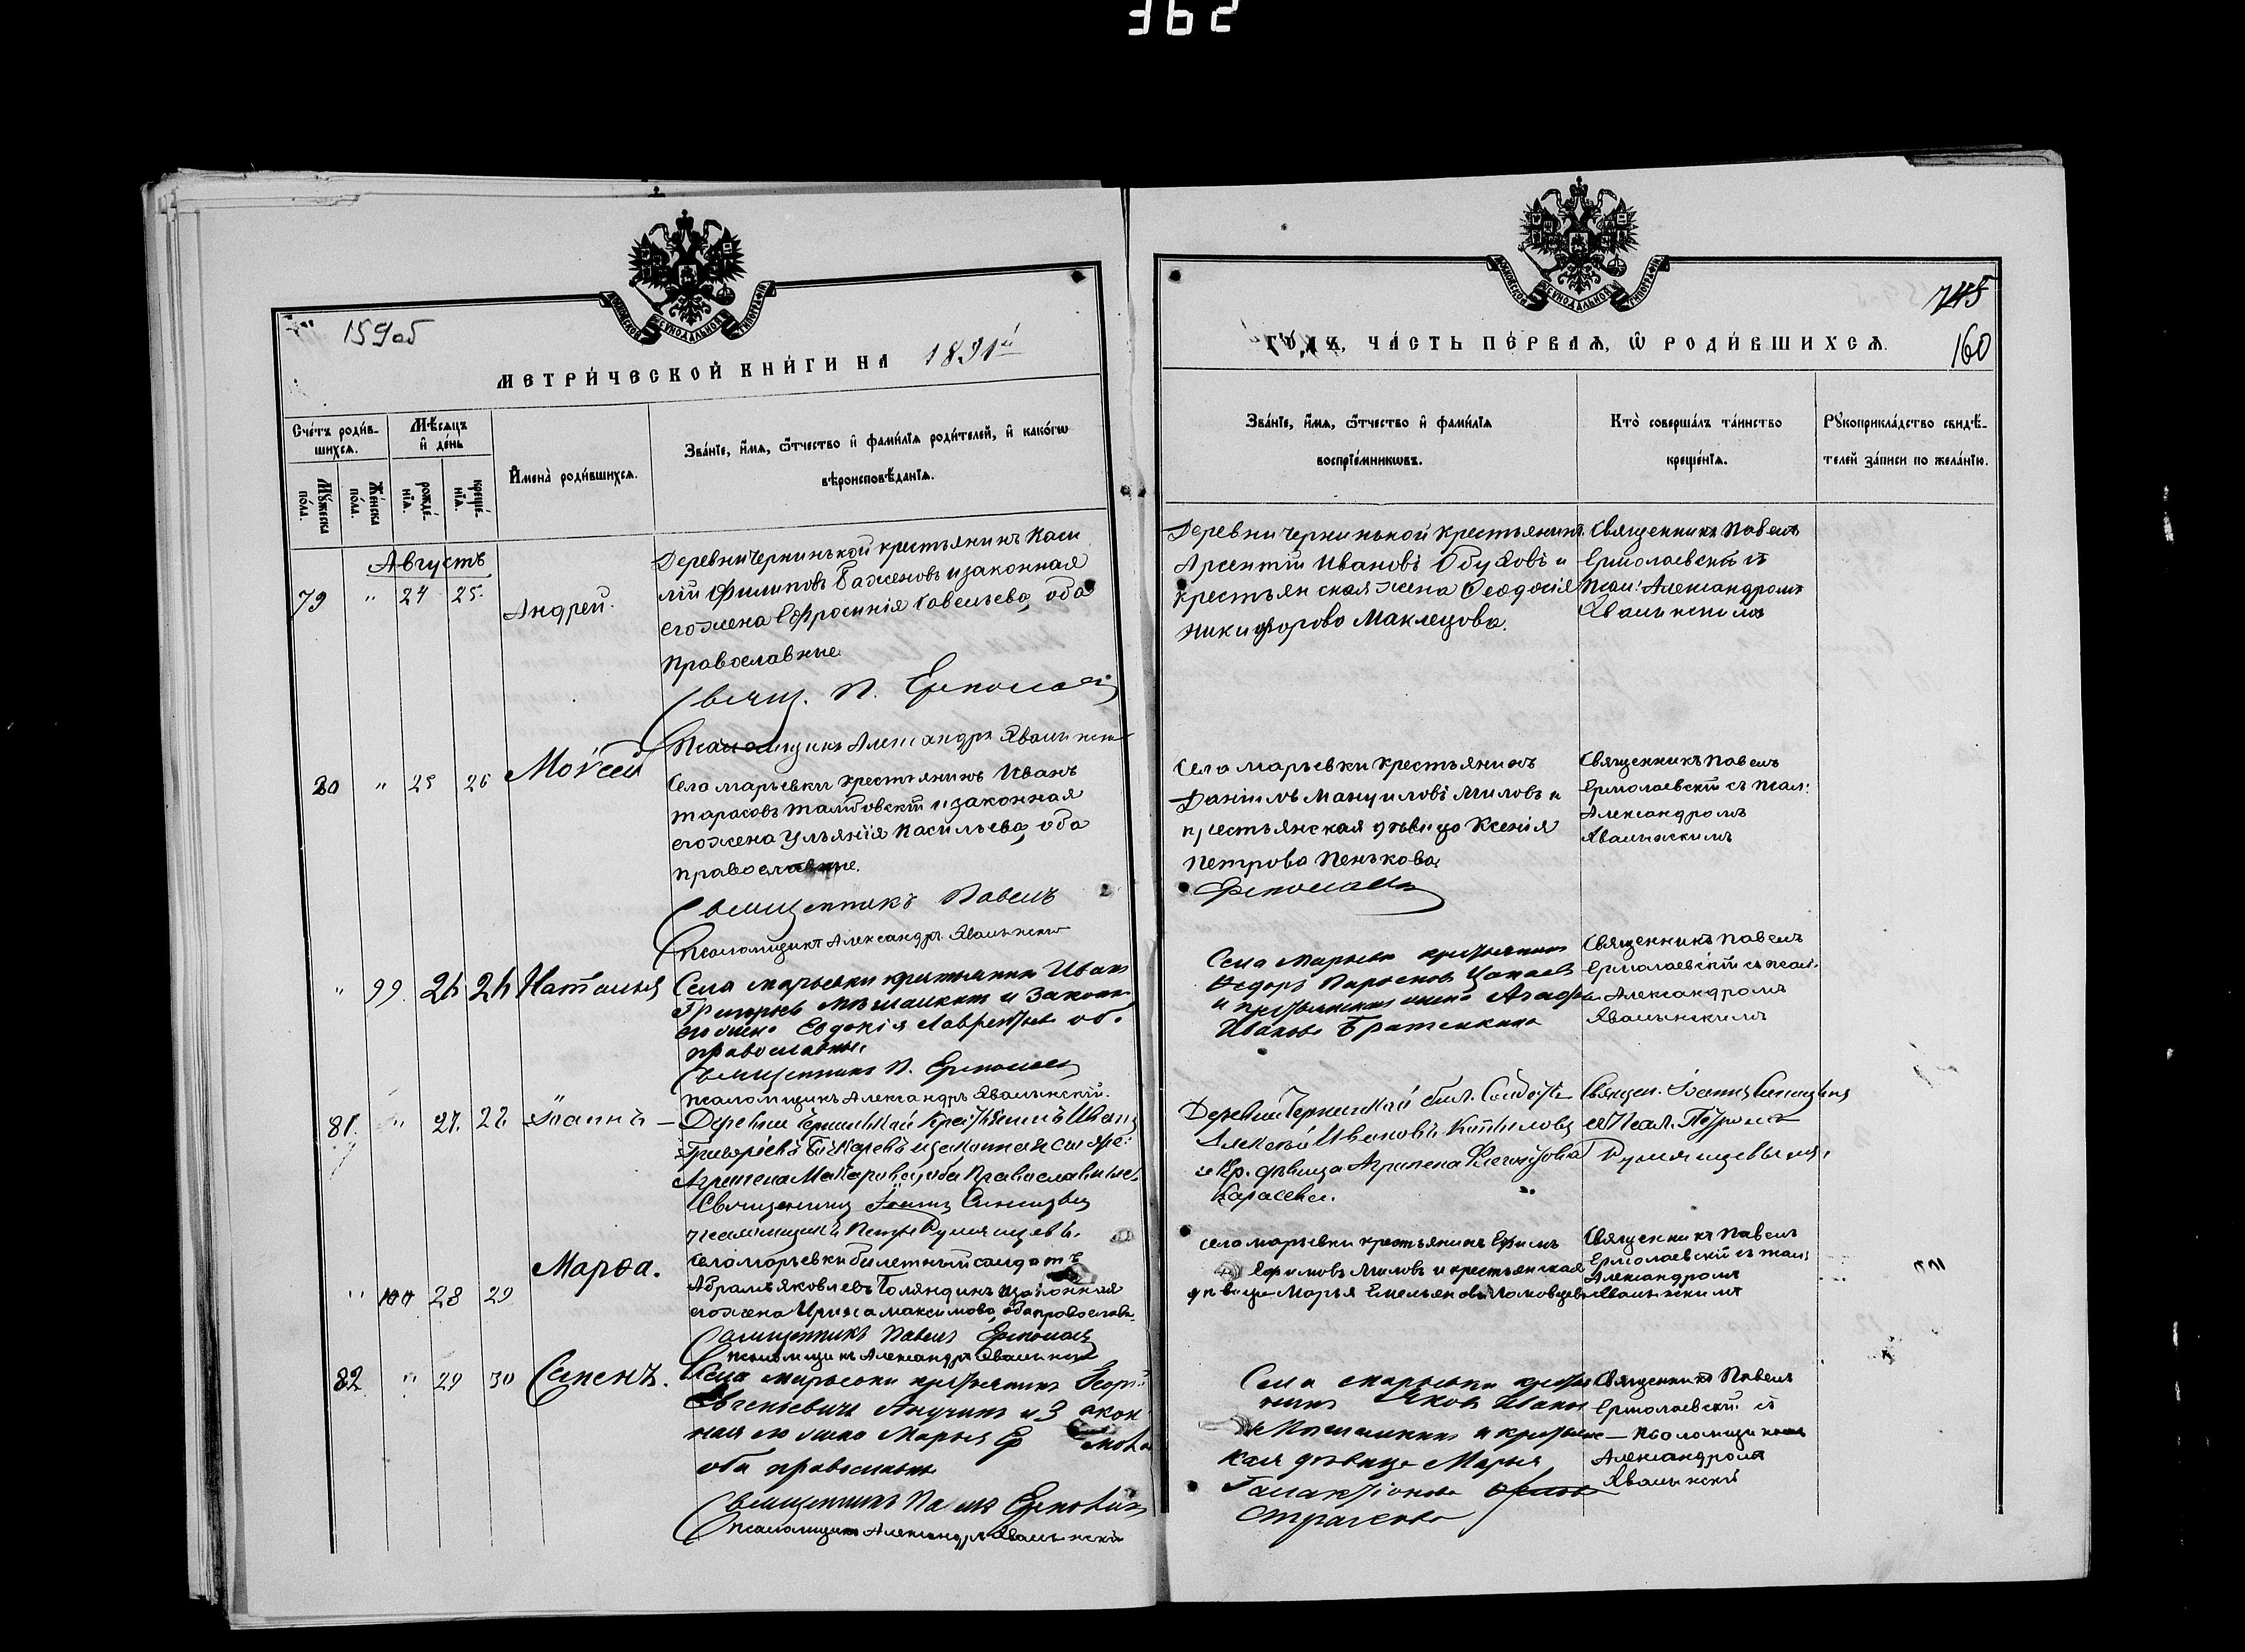 362
159об
МЕТРИ́ЧЕСКОЙ КНИ́ГИ НА 1891й
Сче́тъ роди́в-
шихся.
Мѣ́сяцъ
и҆ де́нь
Мꙋ́жеска
по́лꙋ.
Же́нска
по́лꙋ.
рожде́-
нїѧ.
креще́-
нїѧ.
И҆мена̀ роди́вшихсѧ.
Зва́нїе, и҆́мѧ, ѻ҆́тчество и҆ фами́лїѧ роди́телей, и҆ како́гѡ
вѣроисповѣ́данїѧ.
Августъ
79 " 24 25. Андрей.
Деревни Чернинькой крестьянинъ Васи
лій Филиповъ Баженовъ и законная
его жена Ефросинія Савельева, оба
Православные
Свящ. П. Ермолаев
Псаломщикъ Александръ Хвалынск
80 " 25 26 Моѵсей
Села Марьевки крестьянинъ Иванъ
Тарасовъ Тамбовскій и законная
его жена Ульянія Васильева, оба
православные.
Священникъ Павелъ
Псаломщикъ Александръ Хвалынскій
" 99 26 26 Наталья
Села Марьевки крестьянинъ Иванъ
Григорьев и законн
его жена Евдокія Лаврентьева об.
православные.
Священникъ П. Ермолаев
Псаломщикъ Александръ Хвалынскій.
81. " 27. 28 Іоаннъ
Деревни Чернинькой Крестьянинъ Иванъ
Григорьевъ и законная его же:
Агрипена Макарова, оба Православные.
Священникъ Іоаннъ Синицын
псаломщикъ Петръ Румянцевъ.
" 100 28 29 Марѳа.
Села Марьевки билетный солдатъ
Абрамъ Яковлевъ Голяндинъ и законная
его жена Ириса Максимова, оба православн.
Священникъ Павелъ Ермолаев
Псаломщикъ Александръ Хвалынскій
82 " 29 30 Семенъ.
Села Марьевки крестьянинъ Георгій
Евгеніевичъ Анучинъ и закон
ная его жена Марья
оба православные
Священникъ Павелъ Ермолаев
Псаломщикъ Александръ Хвалынскій
745
160
ГО́ДЪ, ЧА́СТЬ ПЕ́РВАѦ, Ѡ҆ РОДИ́ВШИХСѦ.
Зва́нїе, и҆́мѧ, ѻ҆́тчество и҆ фами́лїѧ
воспрїе́мникѡвъ.
Кто̀ соверша́лъ та́инство
креще́нїѧ.
Рꙋкоприкла́дство свидѣ́-
телей за́писи по жела́нїю.
Деревни Чернинькой крестьянинъ
Арсентій Ивановъ Обуховъ и
крестьянская жена Ѳеодосія
Никифорова Маклецова.
Священникъ Павелъ
Ермолаевскій съ
Псал: Александромъ
Хвалынскимъ
Села Марьевки крестьянинъ
Даніилъ Мануиловъ Миловъ и
крестьянская дѣвица Ксенія
Петрова Пенькова.
Ермолаев
Священникъ Павелъ
Ермолаевскій съ псал:
Александромъ
Хвалынскимъ
Села Марьевки крестьянинъ
Ѳедоръ
и крестьянская жена Агафья
Иванова Братенкина
Священникъ Павелъ
Ермолаевскій съ псал:
Александромъ
Хвалынскимъ
Деревни Чернинькой бил. Солдатъ
Алексѣй Ивановъ Копыловъ
и Кр. дѣвица Агрипена
Карасева.
Священ. Іоаннъ Синицынъ
съ Псал. Петромъ
Румянцевымъ.
Села Марьевки крестьянинъ Ефимъ
Ефимовъ Миловъ и крестьянская
дѣвица Марья Емельянова
Священникъ Павелъ
Ермолаевскій съ псал:
Александромъ
Хвалынскимъ
Села Марьевки кресть
нинъ Яковъ Иванов
и крестьянс
кая дѣвица Марья
Галактіонова
Страхова
Священникъ Павелъ
Ермолаевскій съ
Псаломщикомъ
Александромъ
Хвалынскій